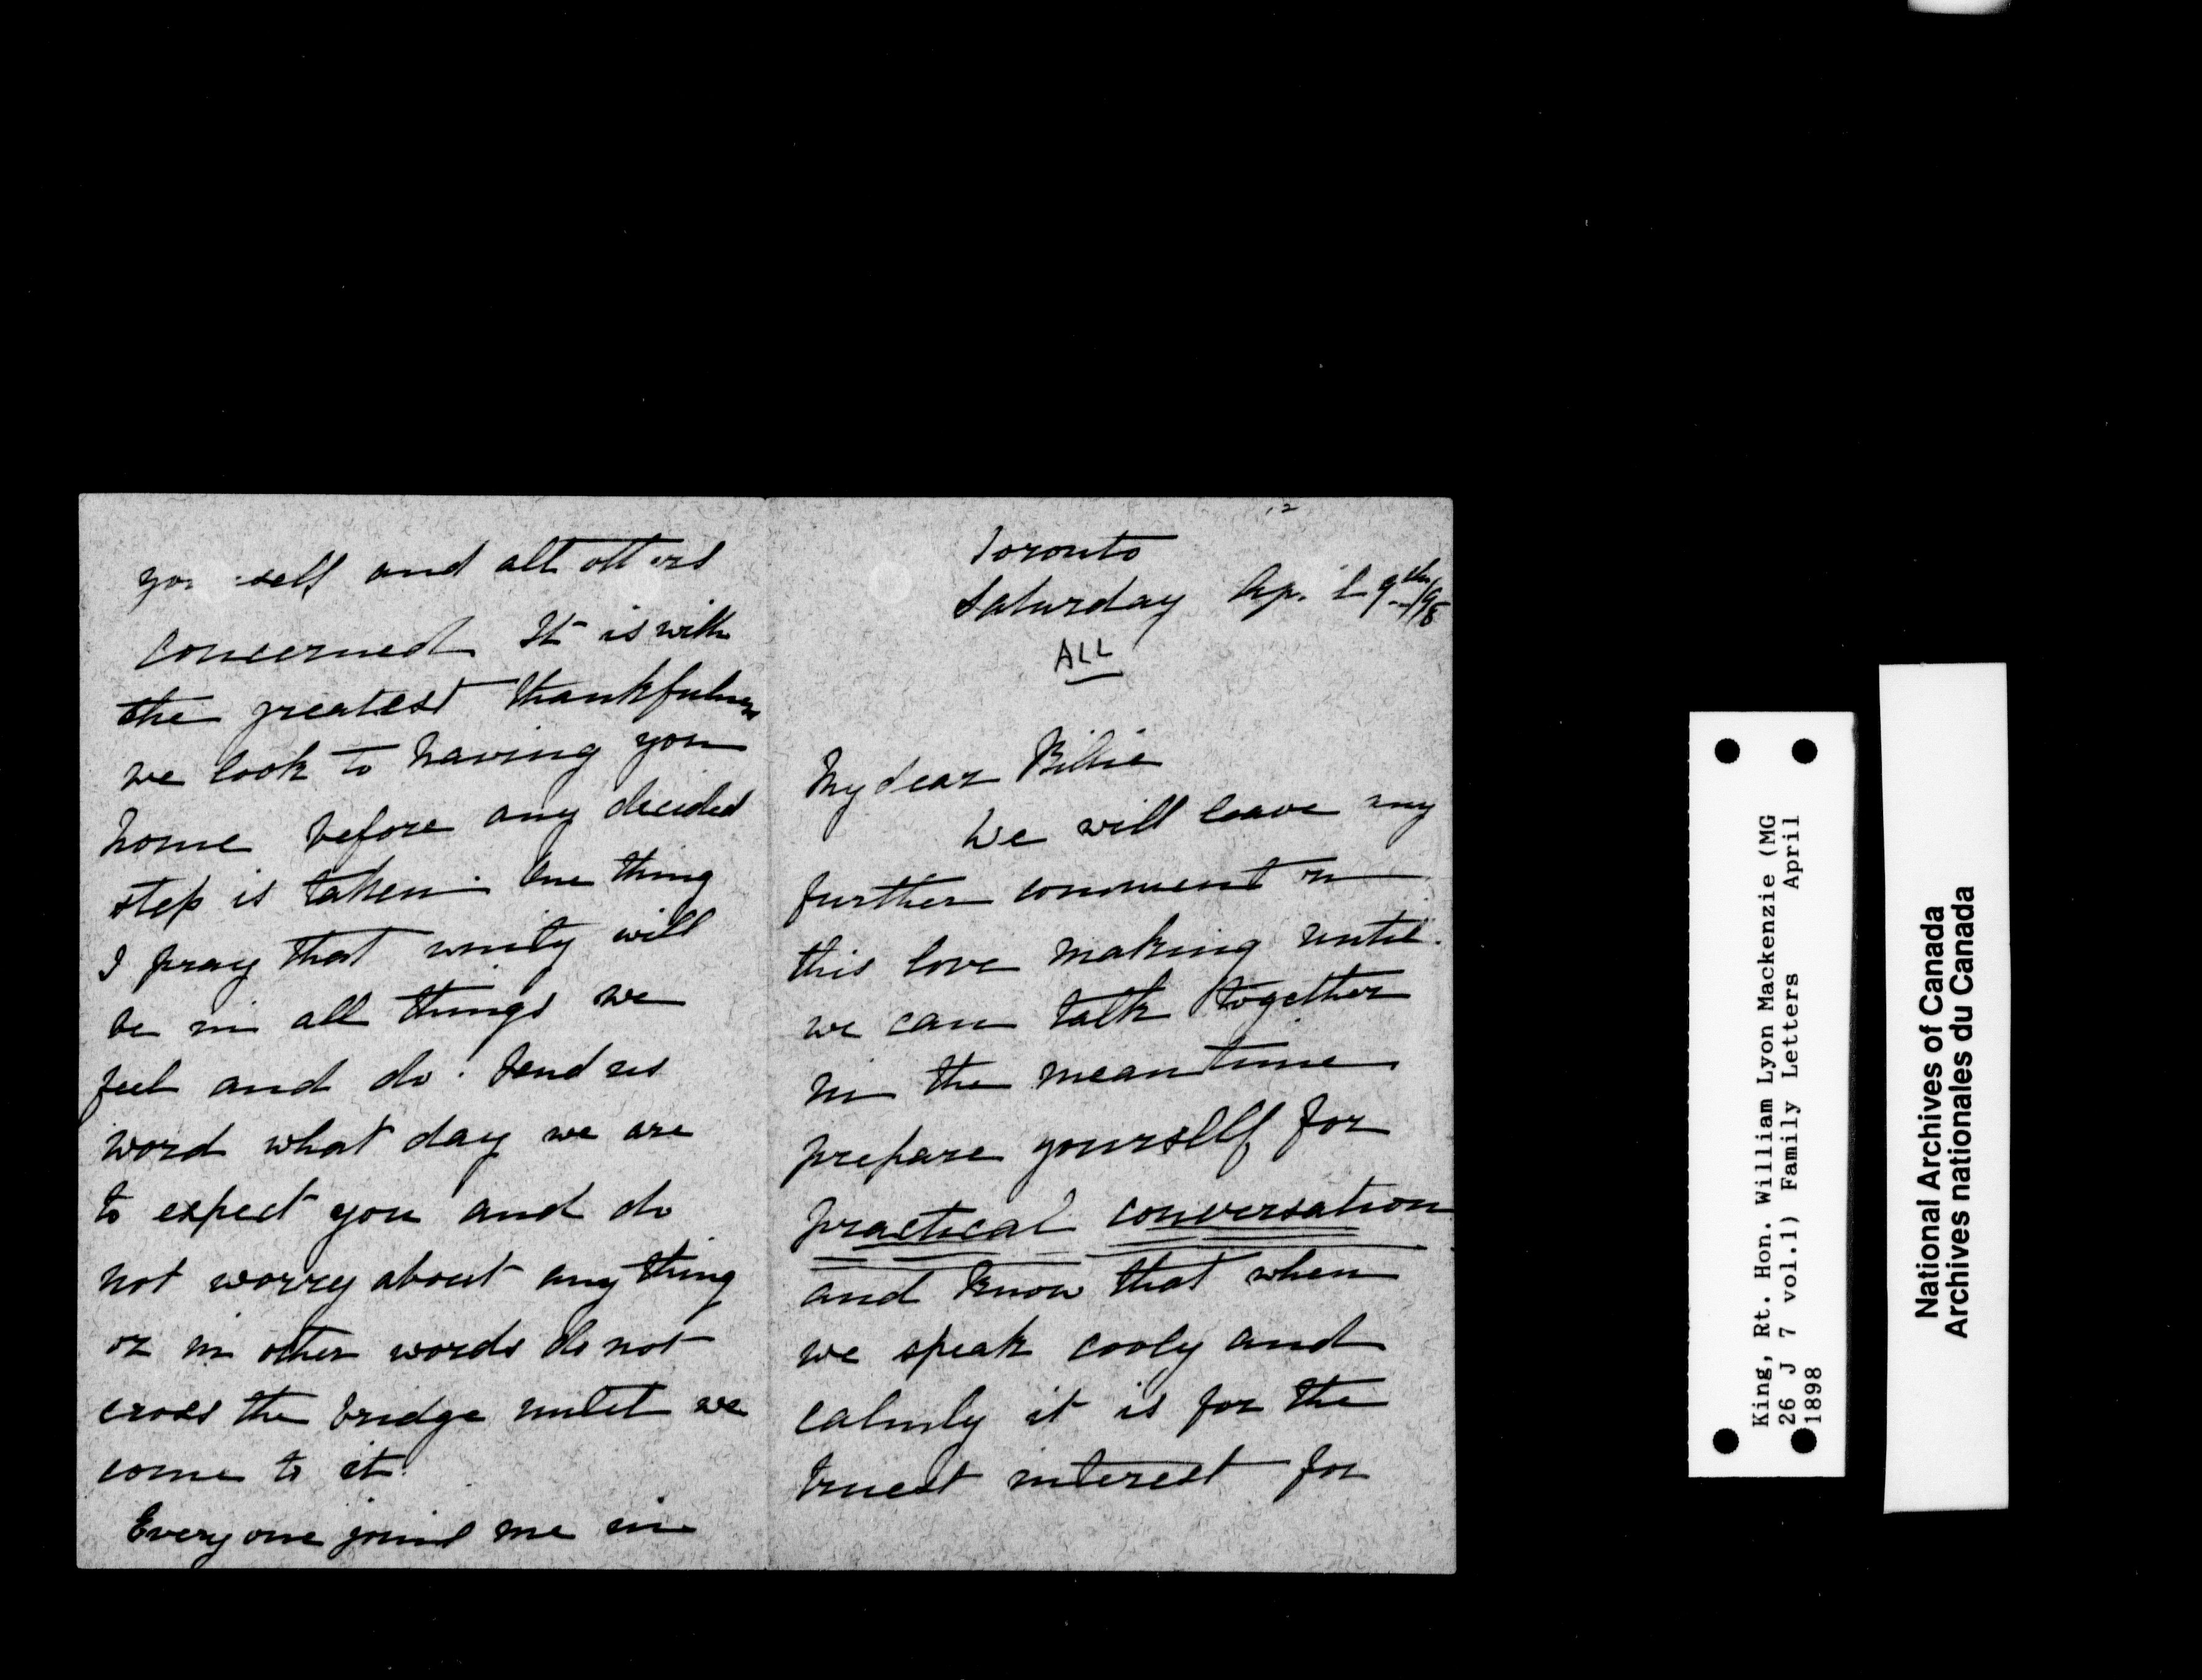 Toronto
Saturday Ap. il 9th/98
ALL
My dear Billie
We will leave any
further comment on
this love making until
we can talk together
in the meantime
prepare yourself for
practical conversation
and know that when
we speak cooly and
calmly it is for the
truest interest for
yourself and all others
concerned It is with
the greatest thankfulness
we look to having you
home before any decided
step is taken. One thing
I pray that unity will
be in all things we
feel and do. Send us
word what day we are
to expect you and do
not worry about anything
or in other words do not
cross the bridge until we
come to it.
Every one joins me in
King, Rt. Hon. William Lyon Mackenzie (MG
26 J 7 vol.1) Family Letters April
1898
National Archives of Canada
Archives nationales du Canada